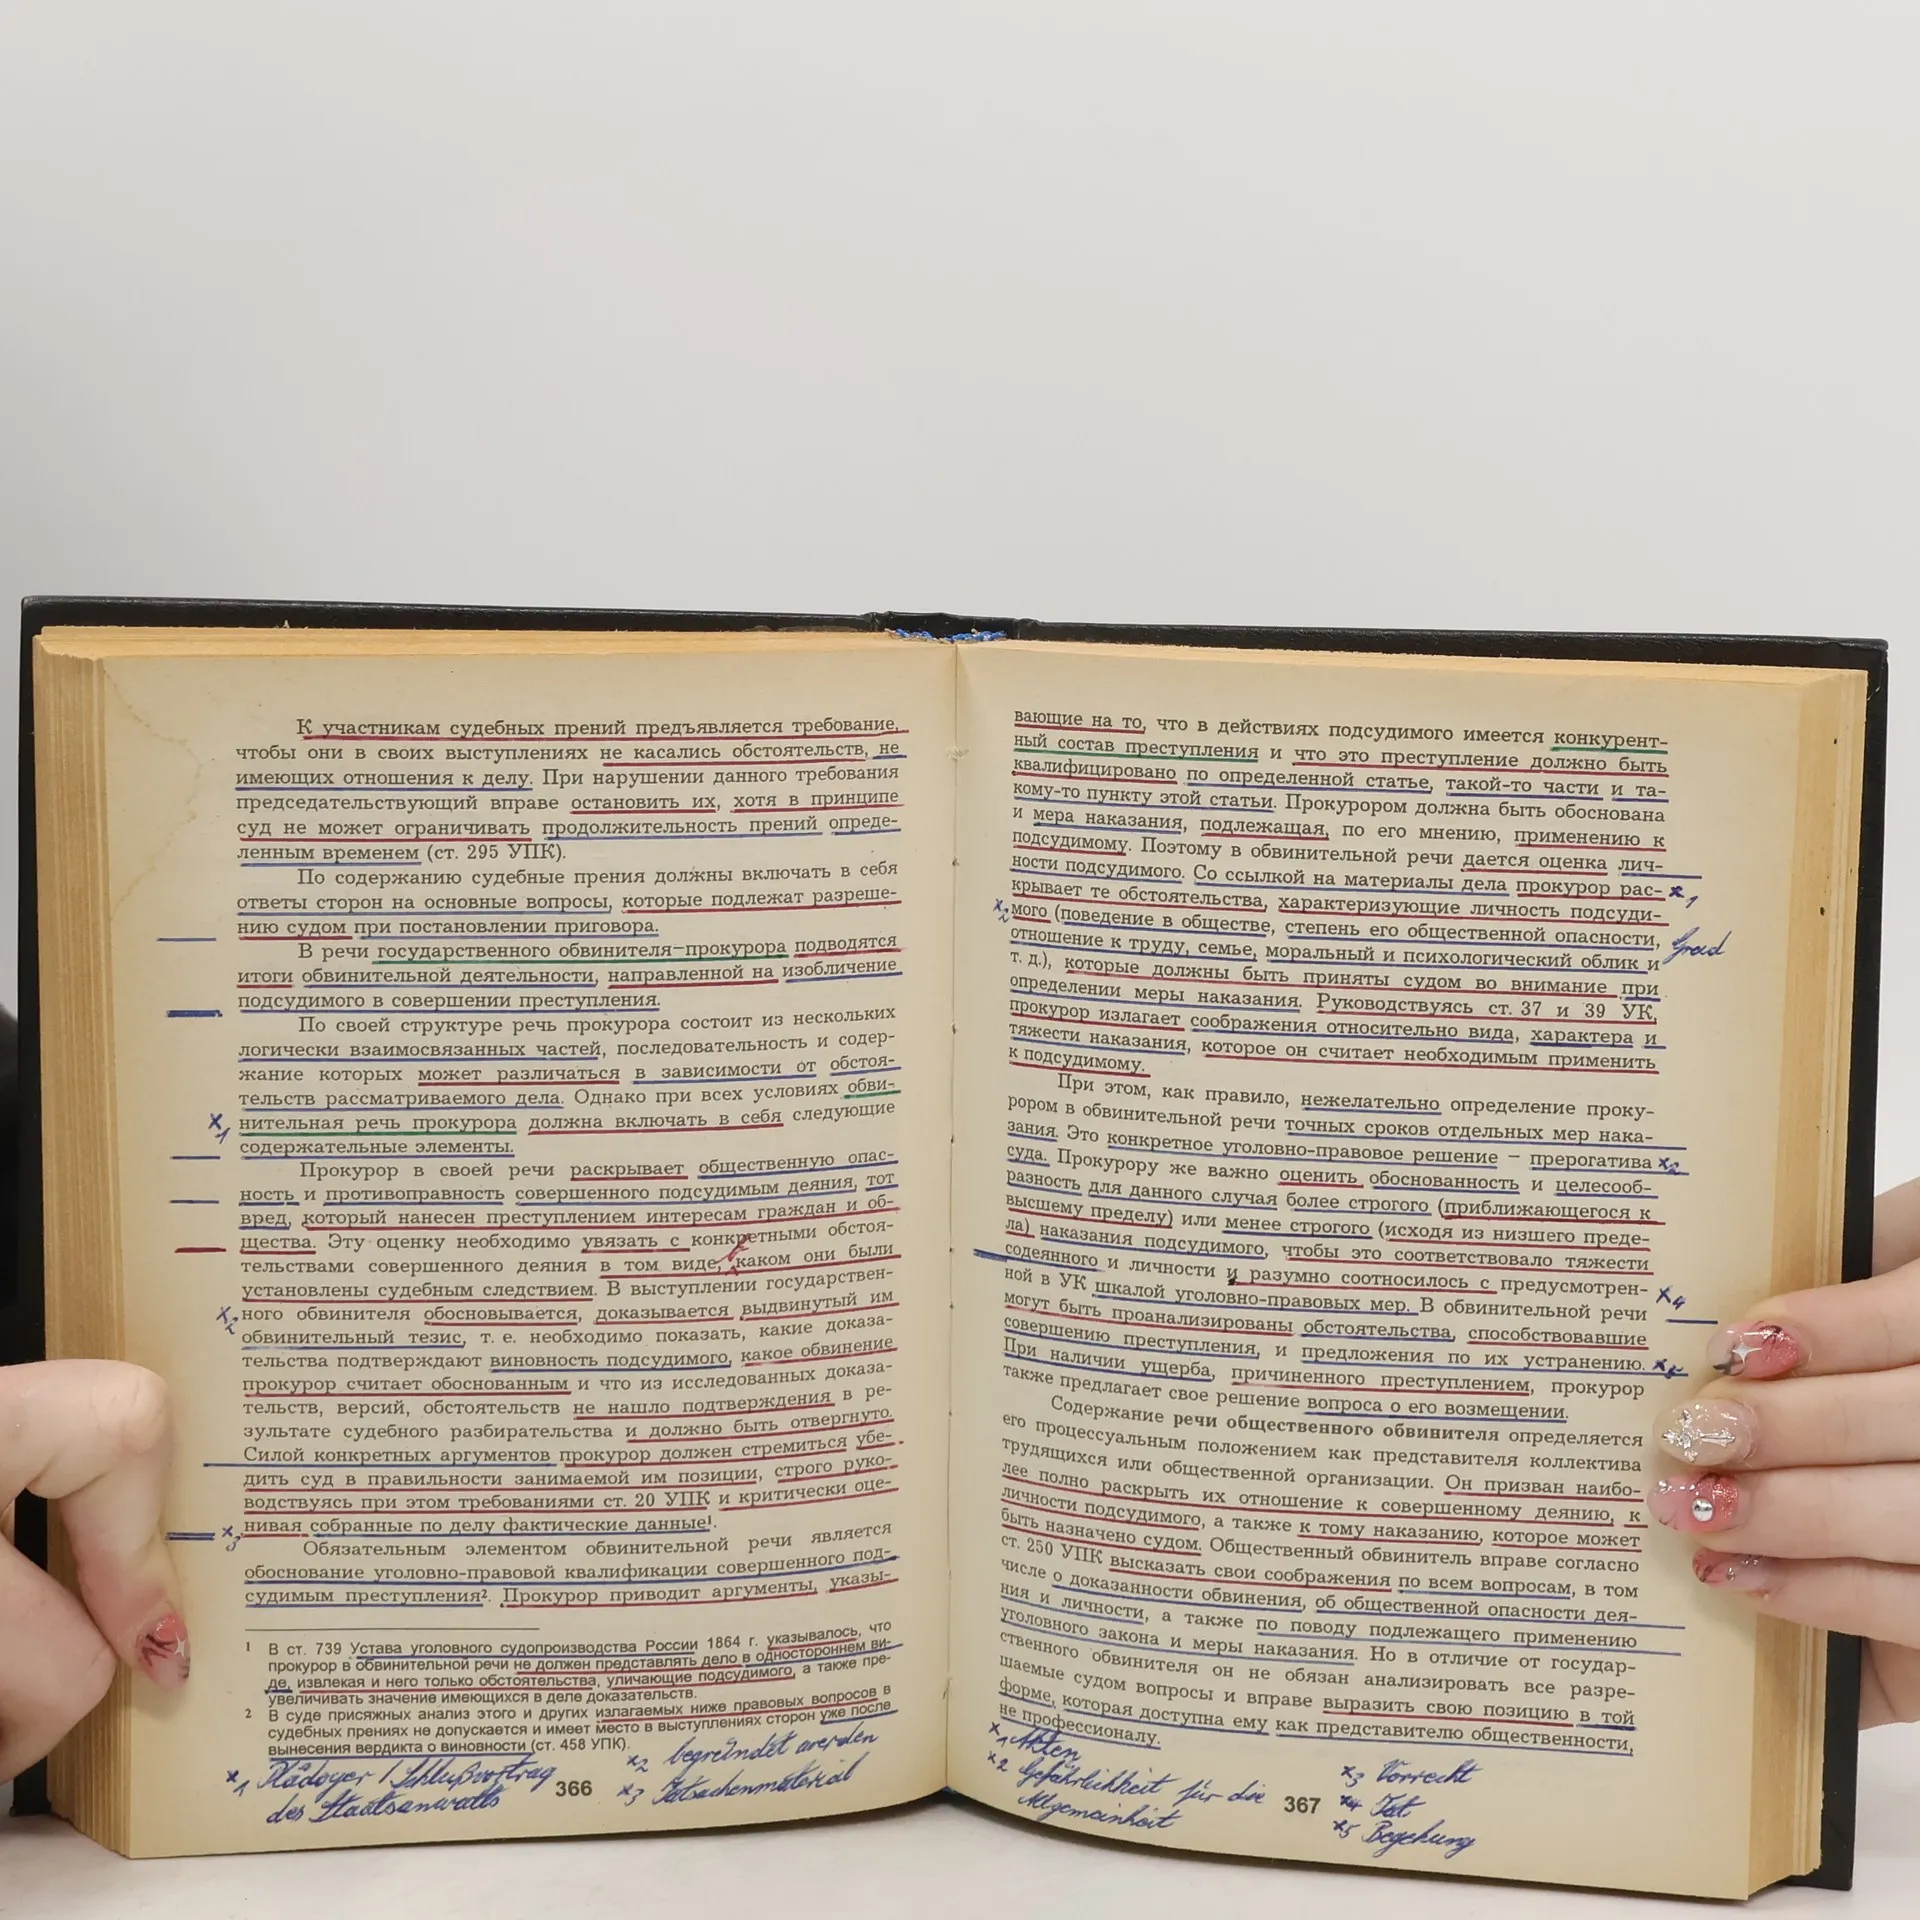 К участникам судебных прений предъявляется требование,
чтобы они в своих выступлениях не касались обстоятельств, не
имеющих отношения к делу. При нарушении данного требования
председательствующий вправе остановить их, хотя в принципе
суд не может ограничивать продолжительность прений опреде-
ленным временем (ст. 295 УПК).
По содержанию судебные прения должны включать в себя
ответы сторон на основные вопросы, которые подлежат разреше-
нию судом при постановлении приговора.
В речи государственного обвинителя–прокурора подводятся
итоги обвинительной деятельности, направленной на изобличение
подсудимого в совершении преступления.
По своей структуре речь прокурора состоит из нескольких
логически взаимосвязанных частей, последовательность и содер-
жание которых может различаться в зависимости от обстоя-
тельств рассматриваемого дела. Однако при всех условиях обви-
x1 нительная речь прокурора должна включать в себя следующие
содержательные элементы.
Прокурор в своей речи раскрывает общественную опас-
ность и противоправность совершенного подсудимым деяния, тот
вред, который нанесен преступлением интересам граждан и об-
щества. Эту оценку необходимо увязать с конкретными обстоя-
тельствами совершенного деяния в том виде, в каком они были
установлены судебным следствием. В выступлении государствен-
x2 ного обвинителя обосновывается, доказывается выдвинутый им
обвинительный тезис, т. е. необходимо показать, какие доказа-
тельства подтверждают виновность подсудимого, какое обвинение
прокурор считает обоснованным и что из исследованных доказа-
тельств, версий, обстоятельств не нашло подтверждения в ре-
зультате судебного разбирательства и должно быть отвергнуто.
Силой конкретных аргументов прокурор должен стремиться убе-
дить суд в правильности занимаемой им позиции, строго руко-
водствуясь при этом требованиями ст. 20 УПК и критически оце-
x3 нивая собранные по делу фактические данные¹.
Обязательным элементом обвинительной речи является
обоснование уголовно-правовой квалификации совершенного под-
судимым преступления². Прокурор приводит аргументы, указы-
1 В ст. 739 Устава уголовного судопроизводства России 1864 г. указывалось, что
прокурор в обвинительной речи не должен представлять дело в одностороннем ви-
де, извлекая и него только обстоятельства, уличающие подсудимого, а также пре-
увеличивать значение имеющихся в деле доказательств.
2 В суде присяжных анализ этого и других излагаемых ниже правовых вопросов в
судебных прениях не допускается и имеет место в выступлениях сторон уже после
вынесения вердикта о виновности (ст. 458 УПК).
x1 Plädoyer / Schlußvortrag
des Staatsanwalts
x2 begründet werden
x3 Tatsachenmaterial
366
вающие на то, что в действиях подсудимого имеется конкурент-
ный состав преступления и что это преступление должно быть
квалифицировано по определенной статье, такой-то части и та-
кому-то пункту этой статьи. Прокурором должна быть обоснована
и мера наказания, подлежащая, по его мнению, применению к
подсудимому. Поэтому в обвинительной речи дается оценка лич-
ности подсудимого. Со ссылкой на материалы дела прокурор рас- x1
крывает те обстоятельства, характеризующие личность подсуди-
x2 мого (поведение в обществе, степень его общественной опасности, Grad
отношение к труду, семье, моральный и психологический облик и
т. д.), которые должны быть приняты судом во внимание при
определении меры наказания. Руководствуясь ст. 37 и 39 УК,
прокурор излагает соображения относительно вида, характера и
тяжести наказания, которое он считает необходимым применить
к подсудимому.
При этом, как правило, нежелательно определение проку-
рором в обвинительной речи точных сроков отдельных мер нака-
зания. Это конкретное уголовно-правовое решение – прерогатива x3
суда. Прокурору же важно оценить обоснованность и целесооб-
разность для данного случая более строгого (приближающегося к
высшему пределу) или менее строгого (исходя из низшего преде-
ла) наказания подсудимого, чтобы это соответствовало тяжести
содеянного и личности и разумно соотносилось с предусмотрен-
ной в УК шкалой уголовно-правовых мер. В обвинительной речи x4
могут быть проанализированы обстоятельства, способствовавшие
совершению преступления, и предложения по их устранению. x5
При наличии ущерба, причиненного преступлением, прокурор
также предлагает свое решение вопроса о его возмещении.
Содержание речи общественного обвинителя определяется
его процессуальным положением как представителя коллектива
трудящихся или общественной организации. Он призван наибо-
лее полно раскрыть их отношение к совершенному деянию, к
личности подсудимого, а также к тому наказанию, которое может
быть назначено судом. Общественный обвинитель вправе согласно
ст. 250 УПК высказать свои соображения по всем вопросам, в том
числе о доказанности обвинения, об общественной опасности дея-
ния и личности, а также по поводу подлежащего применению
уголовного закона и меры наказания. Но в отличие от государ-
ственного обвинителя он не обязан анализировать все разре-
шаемые судом вопросы и вправе выразить свою позицию в той
форме, которая доступна ему как представителю общественности,
не профессионалу.
x1 Akten
x2 Gefährlichkeit für die
Allgemeinheit
367
x3 Vorrecht
x4 Tat
x5 Begehung